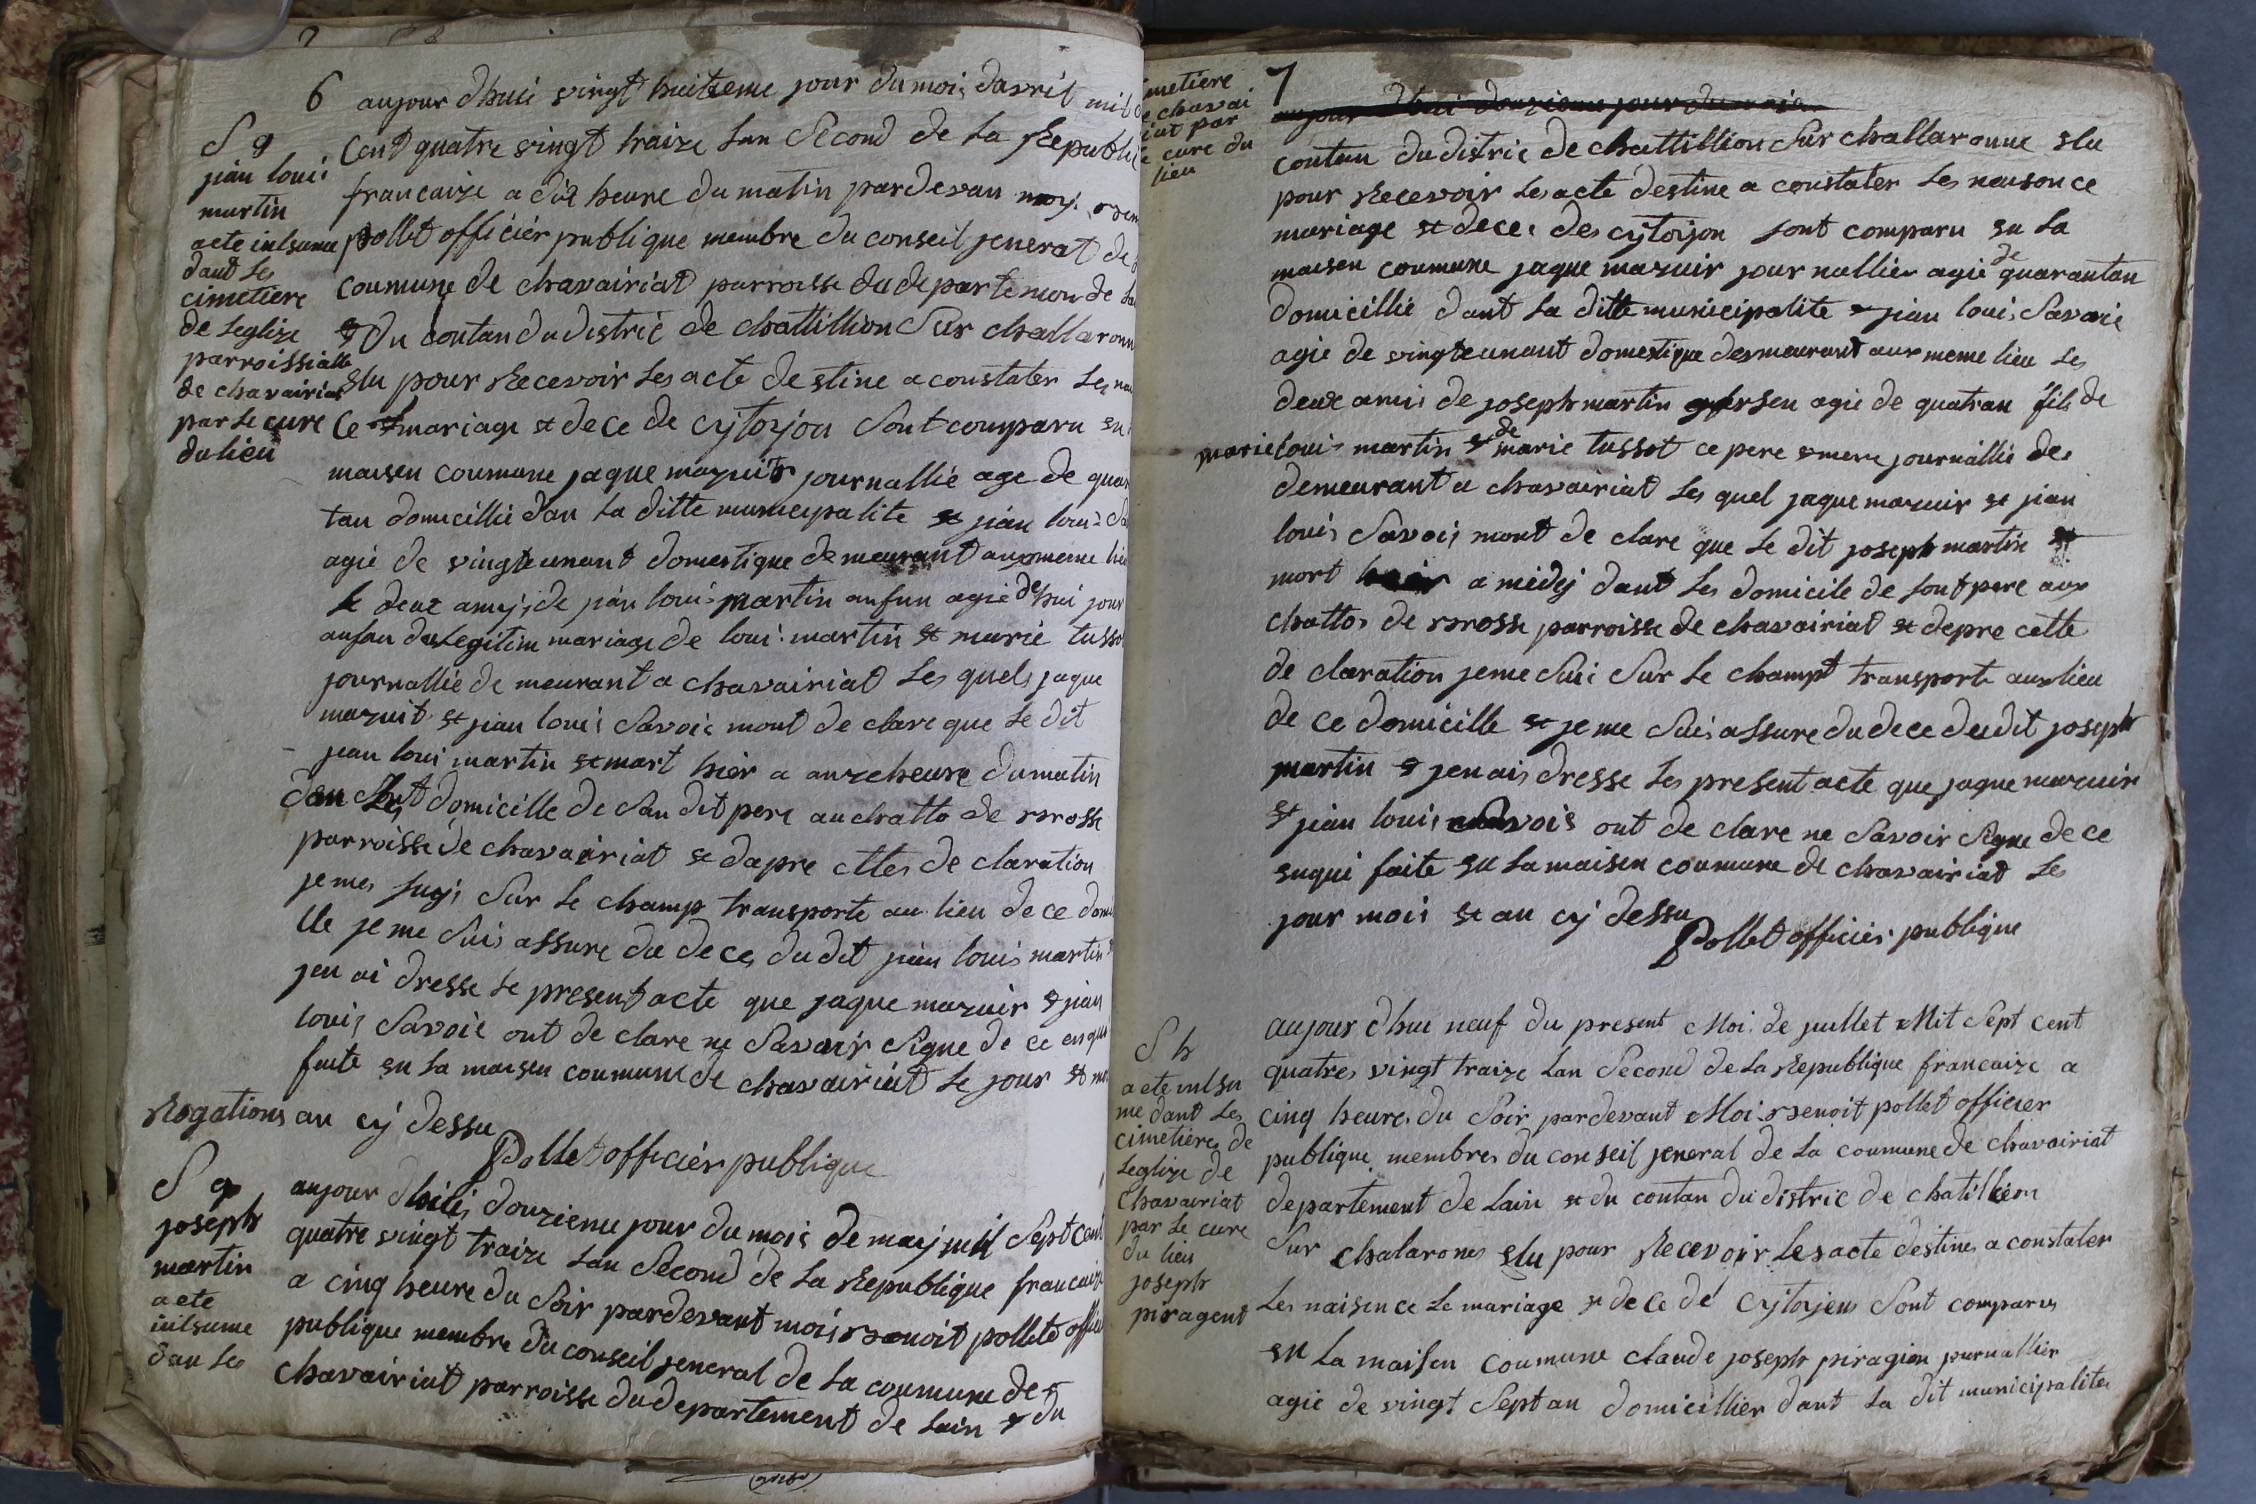 6
aujour dhuii vingt huitzeme jour du mois davril mil
S g
jian loui
martin
acte inlsume
dant les
cimetiere
de leglize
parroissialle
de chavairiat
par le cure
du lieu
Cent quatre vingt traize lan Second de la Republi
francaize a dix heure du matin pardevan moy
pollet officiér publique membre du conseil jeneral de
coumune de chavairiat parroisse du departemon de
et du contan du distric de chattillion Sur challaronn
elu pour Recevoir les acte destine a constater les
Ce mariage et de ce de cytoyon Sont comparu en
maisen coumune jaque mazuir journallié age de quar
tan domicillié dan la ditte municipalite et jian loui
agié de vingteunant domestique demeurant aux meme lieu
le deux amis de jian loui martin anfun agié de hui jour
anfan du legitim mariage de loui martin et marie tussot
journallié de meurant a chavairiat les quels jaque
mazuit et jian loui Savoié mont de clare que le dit
jean loui martin et mort hiér a anze heure du matin
dan domicille de San dit pere au chatto de
parroisse de chavairiat et dapre cttes de claration
jemes suyi Sur le champ transporte au lieu de ce domi
lle je me Suis assure du de ces du dit jian louis martin
jen ai dresse le present acte que jaque mazuir et jian
louis Savoié ont de clare ne Savoir Signe de ce enqui
faite en la maisen coumune de chavairiat le jour et
Rogations an cy dessu
Pollet officiér publique
S g
joseph
martin
acte
inlsume
dan les
aujour dhui douzieme jour du mois de mai mil Sept cent
quatre vingt traize lan Second de la Republique francaize
a cinq heure du Soir pardevant moi benoit pollet offici
publique membre du conseil jeneral de la coumune de
chavairiat parroisse du departement de lain et du
7
cimetiere
de chavai
riat par
le cure du
lieu
aujour dhui douzieme jour du mois
contan du distric de chattillion Sur challaronne elu
pour Recevoir les acte destine a constater les naison ce
mariage et de ces des cytoyon sont comparu en la
maisen coumune jaque mazuir journallier agié de quarantan
domicillié dant la ditte municipalite et jian louis Savoié
agié de vingteunant domestique demeurant aux meme lieu les
deux amis de joseph martin agié de quatran fils de
marie loui martin et de marie tussot ce pere et mere journallié de
demeurant a chavairiat les quel jaque mazuir et jian
louis Savois mont de clare que le dit joseph martin et
mort a midy dant les domicile de sont pere aux
chattos de parroisse de chavairiat et depre cette
de claration jeme Sui Sur le champt transporte aux lieu
de ce domicille et je me Suis assure du de ce du dit joseph
martin et jenais dresse les present acte que jaque mazuir
et jian louis Savois ont de clare ne Savoir Signe de ce
enqui faite en la maisen coumune de chavairiat les
jour mois et an cy dessu
Pollet officiér publique
S h
acte inlsu
me dant les
cimetiéres de
leglize de
chavairiat
par le cure
du lieu
joseph
piragent
aujour dhui neuf du present Moi de juillet Mil Sept cent
quatres vingt traize lan Second de la Republique francaize a
cinq heures du Soir pardevant Moi benoit pollet officier
publique membres du conseil jeneral de la coumune de chavairiat
departement de lain et du contan du distric de chatillion
Sur chalarones elu pour Recevoir les acte destines a constater
les naisence le mariage et de ce de cytoyens Sont comparus
en la maisen coumune claude joseph piragion journallier
agié de vingt Sept an domicillier dant la dit municipalites